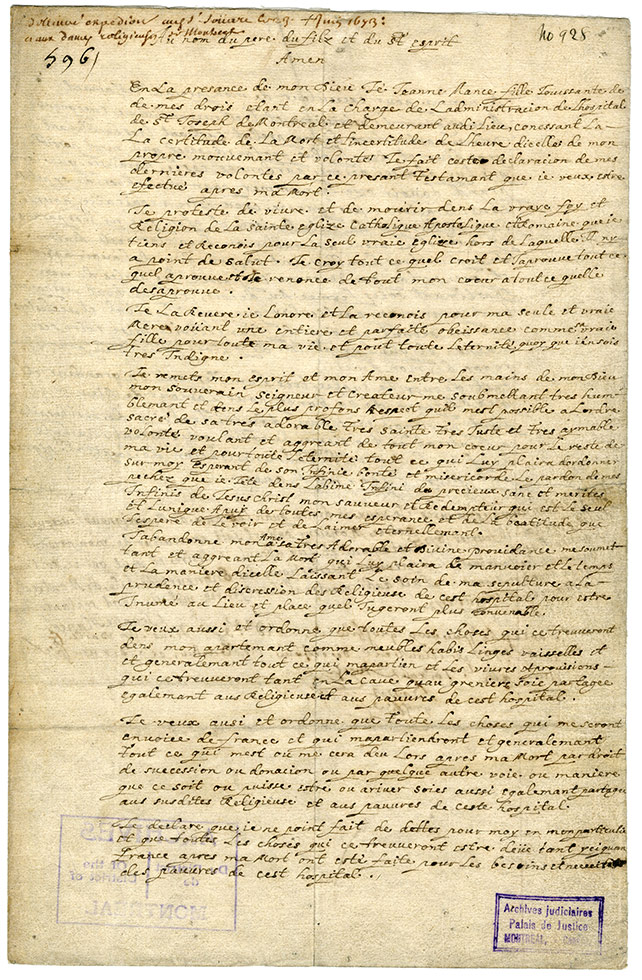 Delivré expedition
No 928
et aux dames religieuses de Montreal
au nom du pere du filz et du St esprit
596/
Amen
En La presance de mon Dieu Je Jeanne Mance fille Jouissante de
de mes drois etant en La Charge de Ladministracion de Lhospital
de St Joseph de Montreal et demeurant audi Lieu, conessant La
La certitude de La Mort et Lincertitude de Lheure dicelle de mon
propre mouvemant et volonté Je fait ceste declaracion de mes
dernieres volontés par ce presant Testamant que ie veux estre
efectué apres ma Mort.
Je proteste de vivre et de mourir dens La vraye foy et
Religion de La Sainte eglize Catholique Apostolique et Romaine que ie
tiens et Reconois pour La Seul vraie eglize hors de Laquelle Il ny
a point de salut. Je croy tout ce quel croit et Japrouve tout ce
quel aprouve et Je renonce de tout mon coeur a tout ce quelle
desaprouve.
Je La Revere ie Lonore et La reconois pour ma seule et vraie
Mere voüant une entiere et parfaite obeissance comme sa vraie
fille pour toute ma vie et pour toute Leternité quoy que ie n sois
tres Indigne.
Je remets mon esprit et mon Ame entre Les mains de mon Dieu
mon souverain seigneur et Createur me soubmettant tres hum-
blement et dens Le plus profons Respect quil mest possible a Lordre
sacré de sa tres adorable tres sainte tres Juste et tres aymable
volonté voulant et aggreant de tout mon coeur pour Le reste de
ma vie et pour toute Leternité tout ce qui Luy plaira dordonner
sur moy Esperant de son Infinie bonté et misericorde Le pardon de mes
pechez que ie Jete dens Labime Infini du precieux sanc et merites
Infinis de Jesus Christ mon sauveur et Redempteur qui est Le seul
et Lunique Apuy de toutes mes esperance et de La beatitude que
Jespere de Le voir et de Laimer eternellemant.
Jabandonne mon Ame a sa tres Adorable et Divine providance me soumet-
tant et aggreant La Mort que Luy plaira de manvoier et Le temps
et La maniere dicelle Laissant Le soin de ma sepulture a La
prudence et discression des Religieuse de cest hospital pour estre
Inumé au Lieu et place quel Jugeront plus convenable.
Je veux aussi et ordonne que toutes Les choses qui ce treuveront
dens mon apartemant comme meubles habis Linges vaisselles et
et generalemant tout ce qui mapartien et Les vivres et provisions
qui ce treuveront tant en La Cave quau greniere soie partagée
egalemant aus Religieuse et aus pauvres de cest hospital.
Je veux ausi et ordonne que toute Les choses qui me seront
envoiee de france et qui mapartiendront et generalemant
tout ce qui mest ou me cera deu Lors apres ma Mort par droit
de succession ou donation ou par quelque autre voie ou maniere
que ce soit ou puisse estre ou ariver soies aussi egalemant partagee
aus susdites Religieuse et aus pauvres de ceste hospital.
Je declare que ie ne point fait de dettes pour moy en mon particulie
et que toute Les choses qui ce treuveront estre deue tant icy quan
france apres ma Mort ont esté faite pour Les besoins et necessité
des pauvres de cest hospital.
Archives judiciaires
Palais de Justice
MONTREAL,